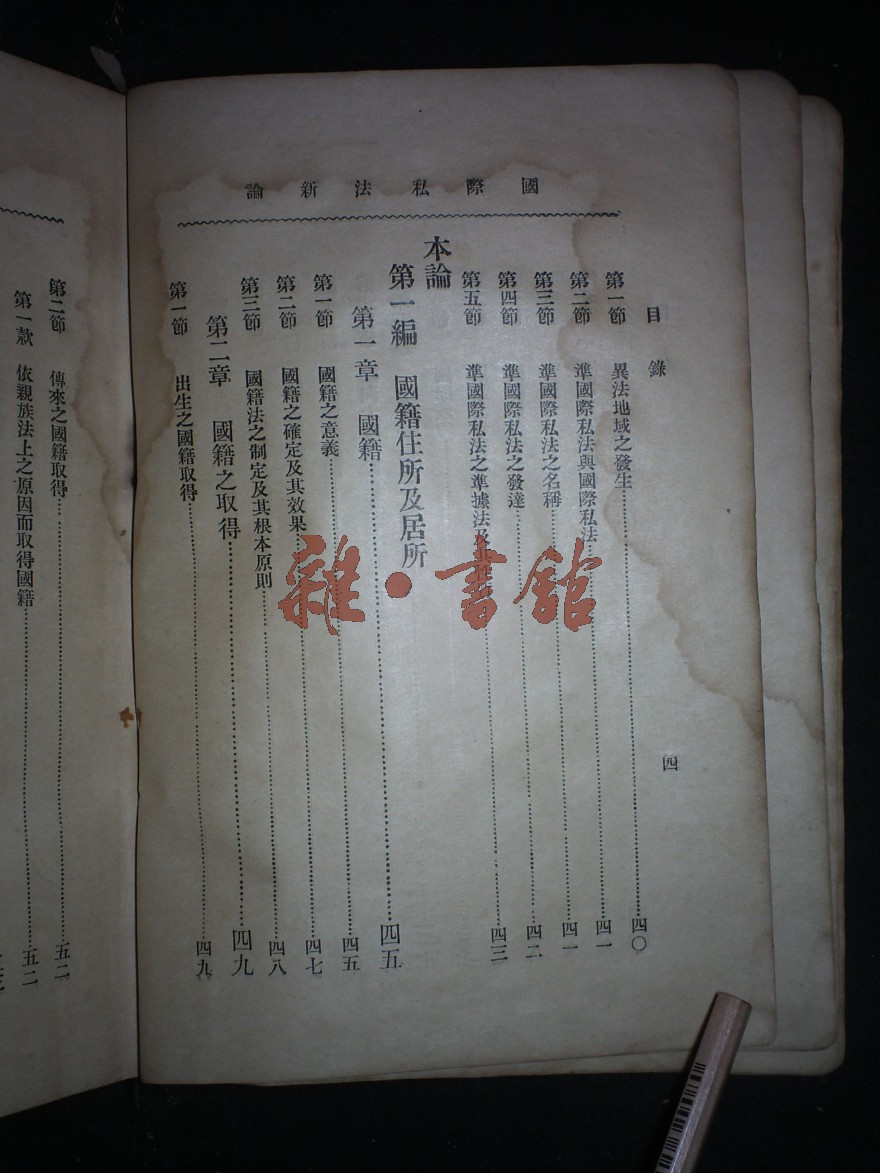 國際私法新論
目錄
四
第一節 異法地域之發生……四〇
第二節 準國際私法與國際私法……四一
第三節 準國際私法之名稱……四一
第四節 準國際私法之發達……四二
第五節 準國際私法之準據法及其性……四三
本論
第一編 國籍住所及居所
第一章 國籍……四五
第一節 國籍之意義……四五
第二節 國籍之確定及其效果……四七
第三節 國籍法之制定及其根本原則……四八
第二章 國籍之取得……四九
第一節 出生之國籍取得……四九
第二節 傳來之國籍取得……五二
第一款 依親族法上之原因而取得國籍……五二
雜·書館